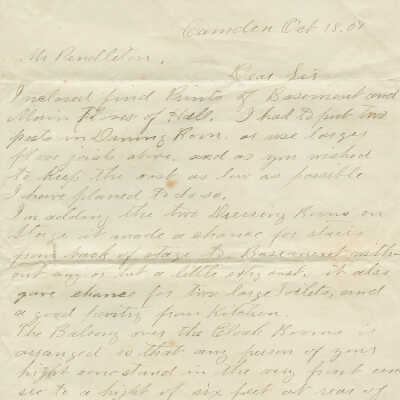 Camden Oct 18. 04
Mr Pendleton,
Dear Sir
Inclosed find Prints of Basement and
Main Floors of Hall. I had to put two
posts in Dining Room, or use larger
floor joists above, and as you wished
to keep the cost as low as possible
I have planned to do so.
In adding the two Dressing Rooms on
Stage it made a chance for stairs
from back of stage to Basement with-
out any or but a little ext cost. it also
gave chance for two large toilets, and
a good pantry from Kitchen.
The Balcony over the Cloak Rooms is
arranged so that any person of your
hight can stand in the very front and
se to a hight of six feet at rear of